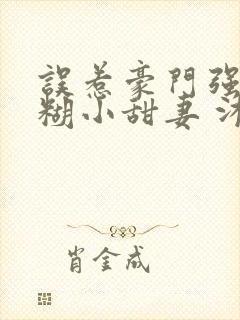 誤惹豪門强
糊小甜妻
肖金成